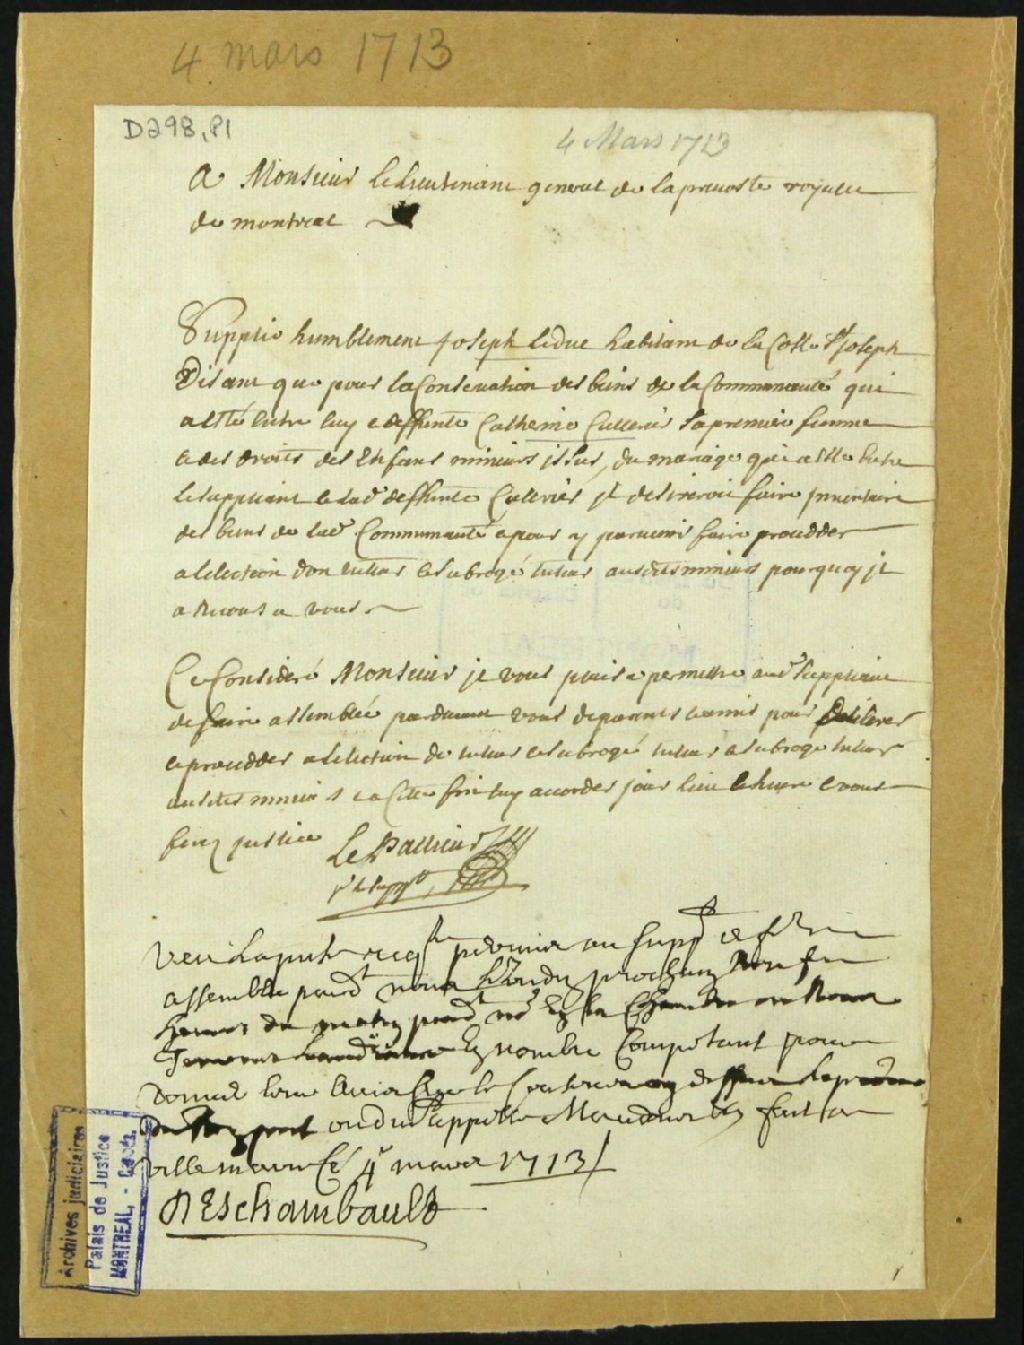 4 mars 1713
D298, P1
4 Mars 1713
A Monsieur le lieutenant general de la prevosté royalle
de montreal
Supplie humblement joseph leduc habitant de la Coste St Joseph
Disant que pour la Conservation des biens de la Communauté qui
a esté entre luy e deffunte Catherine Cuillerier sa premiere femme
e des droits des Enfans mineurs issus du mariage qui a esté entre
le suppliant e lad deffunte Cullerier jl desireroit faire jnventaire
des biens de lad Communauté e pour y parvenir faire procedder
a lelection dun tuteur e subrogé tuteur ausdits mineurs pourquoy jl
a recours a vous
Ce Consideré Monsieur je vous plaise permettre aud Suppliant
de faire assemblée pardevant vous de parents e amis pour deliberer
e procedder a lelection de tuteur e subrogé tuteur e subrogé tuteur
ausdits mineurs e a Cette fin luy accorder jour lieu e heure e vous
ferez justice
Le Pallieur
Veu la pnte reqte permis au supp de fre
assemblee pard nous prochain
heures du matin pard
En nombre Competant pour
donner leur avis sur le
fait a
ville marie Ce 4e mars 1713
DEschambault
Archives judiciaires
Palais de Justice
MONTREAL, - Canada.